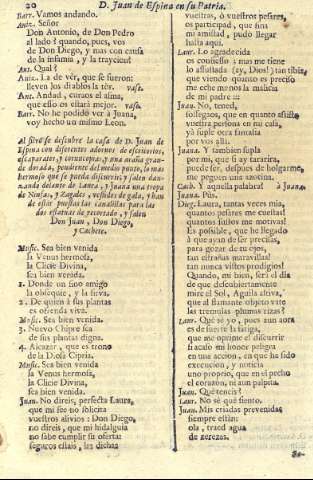 20 D. Juan de Espina en su Patria.
Barr. Vamos andando.
Ant. Señor
Don Antonio, de Don Pedro
al lado? quando, pues, vos
de Don Diego, y mas con causa
de la infamia, y la trayción!
Ant. Qual?
Ana. La de vér, que se fueron:
lleven los diablos la téz. vase.
Ant. Andad, curaos el alma,
que esso os estará mejor. vase.
Barr. No he podido vér à Juana,
voy hecho un mismo Leon.
Al son se descubre la casa de D. Juan de
Espina con diferentes adornos de escritorios,
escaparates, y cornucopias, y una araña gran-
de dorada, pendiente del medio punto, lo mas
hermoso que se pueda discurrir; y salen dan-
zando delante de Laura, y Juana una tropa
de Ninfas, y Zagales, vestidos de gala, y han
de estàr puestas las canalillas para las
dos estatuas de recortado, y salen
Don Juan, Don Diego,
y Cachete.
Music. Sea bien venida
la Venus hermosa,
la Clicie Divina,
sea bien venida.
1. Donde un fino amigo
la obsequie, y la sirva.
2. De quien à sus plantas
es ofrenda viva.
Music. Sea bien venida.
3. Nuevo Chipre sea
de sus plantas digna.
4. Alcazar, que es trono
de la Diosa Cipria.
Music. Sea bien venida
la Venus hermosa,
la Clicie Divina,
sea bien venida.
Juan. No direis, perfecta Laura,
que mi fee no solicita
vuestros alivios: Don Diego,
no direis, que mi hidalguia
no sabe cumplir su oferta:
seguros estais, las dichas
vuestras, ò vuestros pesares,
os participad, que fina
mi amistad, pudo llegar
hasta aqui.
Laur. Lo agradecida
es conocido; mas me tiene
lo assustada (ay, Dios!) tan tibia,
que viendo quanto es preciso
me culpe menos la malicia
de mi padre:
Juan. No, temed,
sossegaos, que en quanto assista
vuestra persona en mi casa,
yà suple otra fantasia
por vos allà.
Juana. Y tambien supla
por mi, que si ay tararira,
puede ser, despues de holgarme,
me peguen una azotina.
Cach. Y aquella palabra? à Juana.
Juana. Pùs.
Dieg. Laura, tantas veces mia,
quantos pesares me cuestas!
quantos sustos me motivas!
Es possible, que he llegado
à que ayan de ser precisas,
para gozar de tu ojos,
tan estrañas maravillas!
tan nunca vistos prodigios!
Quando, mi bien, serà el dia
de que descubiertamente
mire el Sol, Aguila altiva,
que al flamante objeto vate
las tremulas plumas rizas?
Laur. Què sè yo, pues aun aora
es de suerte la fatiga,
que me oprime el discurrir
si acaso mi honor peligra
en una accion, en que ha sido
execucion, y noticia
uno proprio, que en sì precho
el corazon, ni aun palpita.
Juan. Què teneis?
Laur. No sè què siento.
Juan. Mis criadas prevenidas
siempre estàn:
ola, traed agua
de zerezas.
Sa-